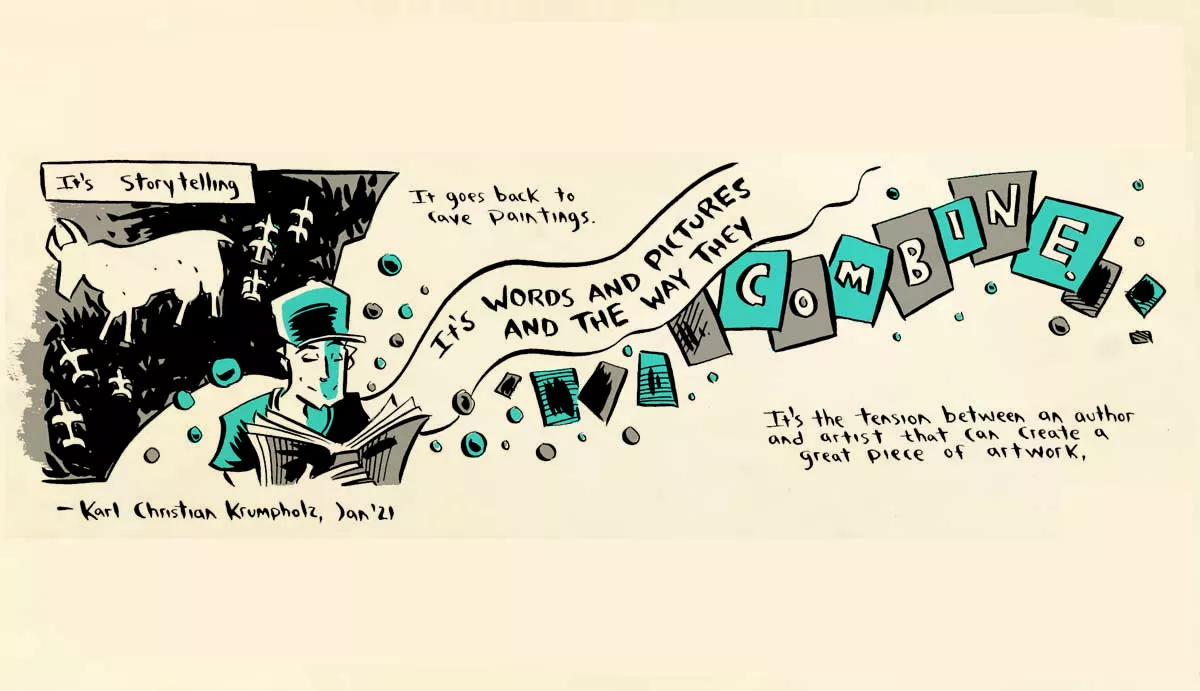 It's Storytelling
It goes back to
cave paintings.
It's WORDS AND PICTURES
AND THE WAY THEY
COMBINE
It's the tension between an author
and artist that can create a
great piece of artwork,
- Karl Christian Krumpholz, Jan '21